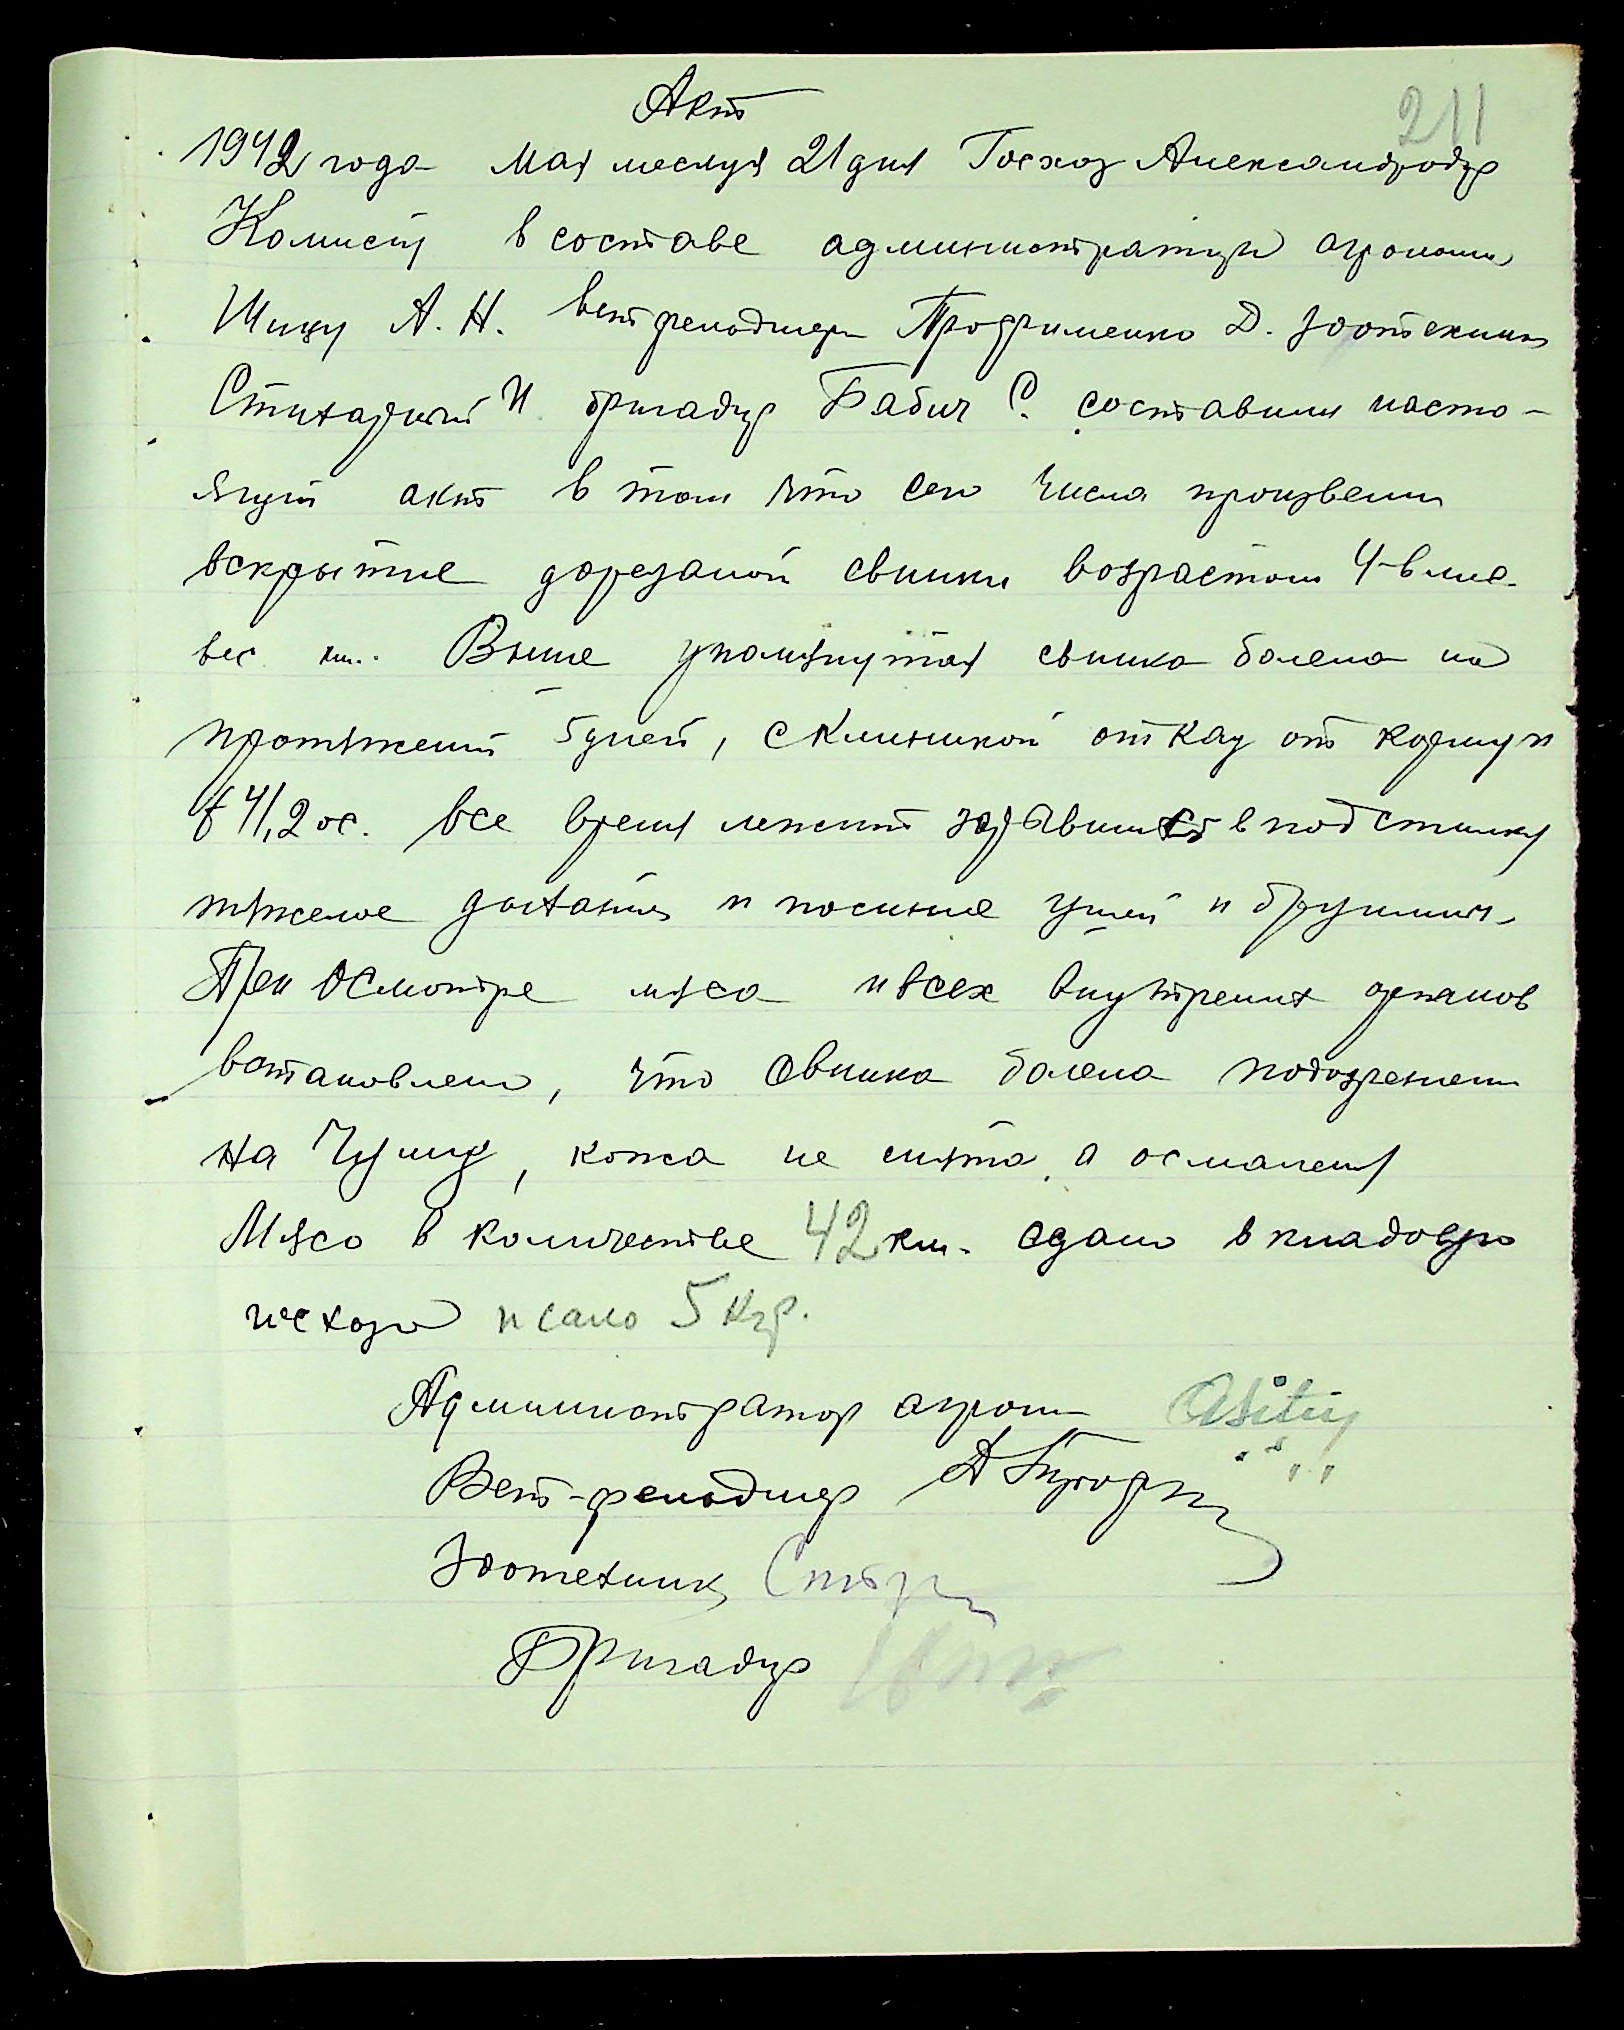 211
Акт
1942 года Мая месяца 21 дня Госхоз Александродар
Комисия в составе администратура агронома
Шицу А. Н. ветфельдшера Трофименко Д. зоотехника
И бригадир Бабич С. составили насто-
ящий акт в том что сего числа произвели
вскрытие дорезаной свинки возрастом 4-в мес.
вес кил. Выше упомянутая свинка болела на
протяжений 5 дней, с клиникой отказ от корму и
t 41,2 ос. все время лежит зарывшись в подстилку
тяжелое дыхания и посиние ушей и брушины.
При осмотре мяса и всех внутрених органов
востановлено, что свинка болела подозрением
на Чуму, кожа не снята, а осмалена
Мясо в количестве 42 кил. сдано в кладовую
госхоза и сало 5 кгр.
Администратор агроном
Вет-фельдшер
Зоотехник
Бригадир